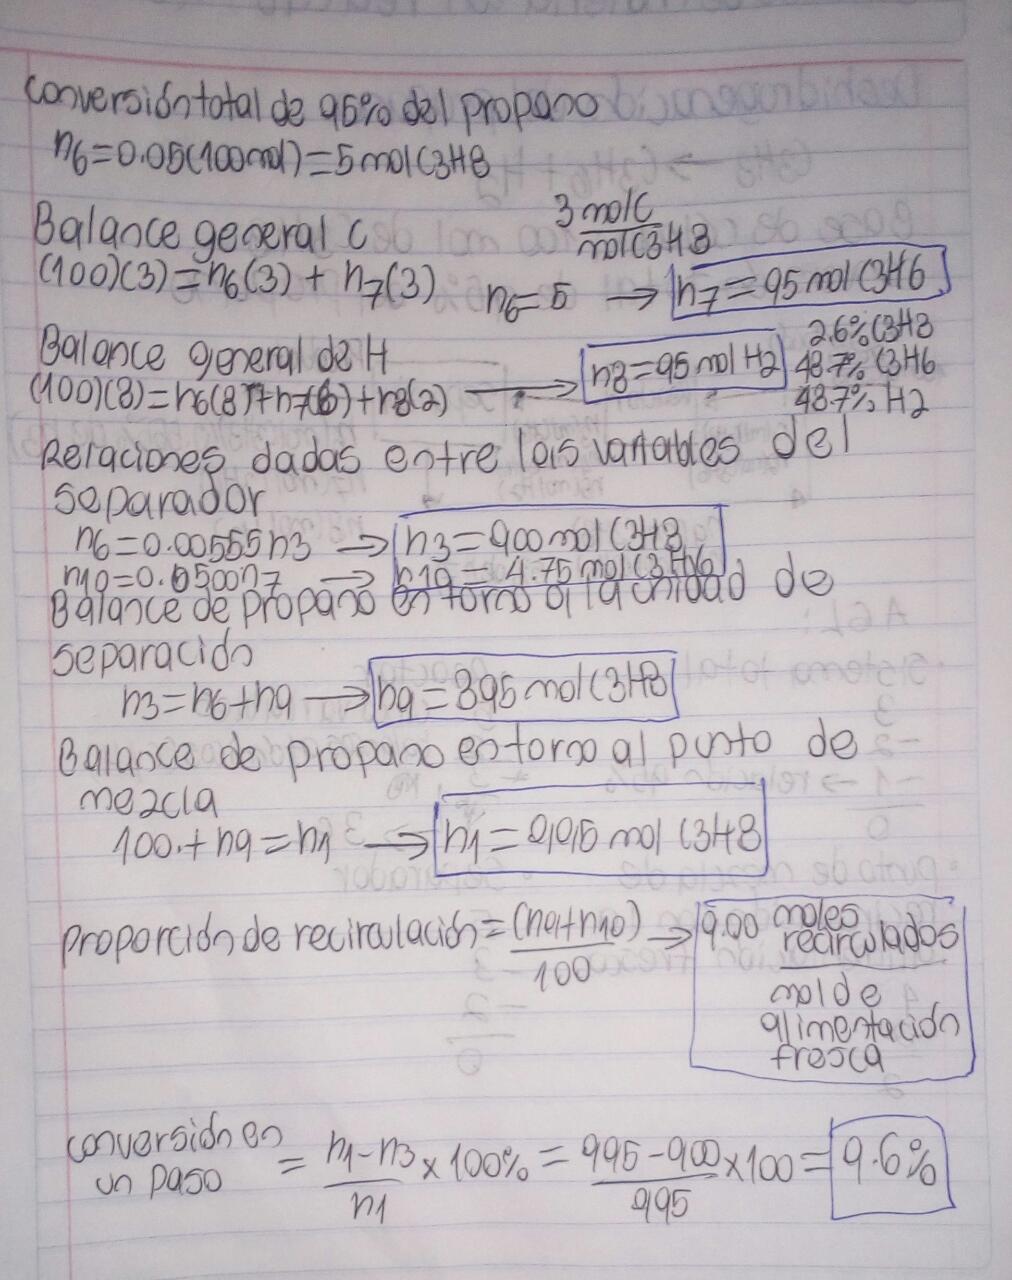 conversión total de 95% del propano
n6=0.05(100mol)=5mol C3H8
Balance general C
3 molC
mol C3H8
(100)(3)=n6(3)+n7(3) n6=5 → n7=95 mol C3H6
Balance general de H
(100)(8)=n6(8)+n7(6)+n8(2) → n8=95 mol H2
2.6% C3H8
48.7% C3H6
48.7% H2
Relaciones dadas entre las variables del
separador
n6=0.00555n3 → n3=900mol C3H8
n10=0.0500n7 → n10=4.75mol C3H6
Balance de propano en torno a la unidad de
separación
n3=n6+n9 → n9=895 mol C3H8
Balance de propano en torno al punto de
mezcla
100+n9=n1 → n1=995 mol C3H8
proporción de recirculación=(n9+n10)/100 → 9.00 moles
recirculados
mol de
alimentación
fresca
conversión en
un paso = n1-n3/n1 x100% = 995-900/995 x100 = 9.6%